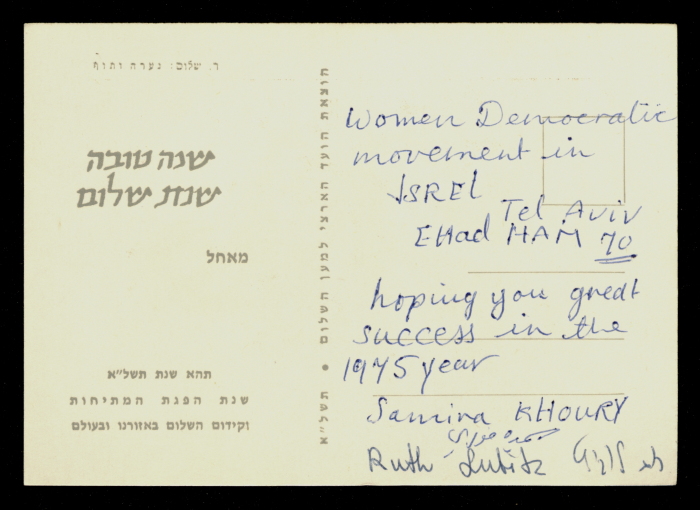 ר. שלום: נערה ותוף
שנה טובה
שנת שלום
מאחל
תהא שנת תשל"א
שנת הפגת המתיחות
וקידום השלום באזורנו ובעולם
הוצאת הועד הארצי למען השלום • תשל"א
Women Democratic
movement in
ISREL
Tel Aviv
EHad HAM 70
hoping you great
success in the
1975 year
Samira KHOURY
سميره خوري
Ruth Lubitz